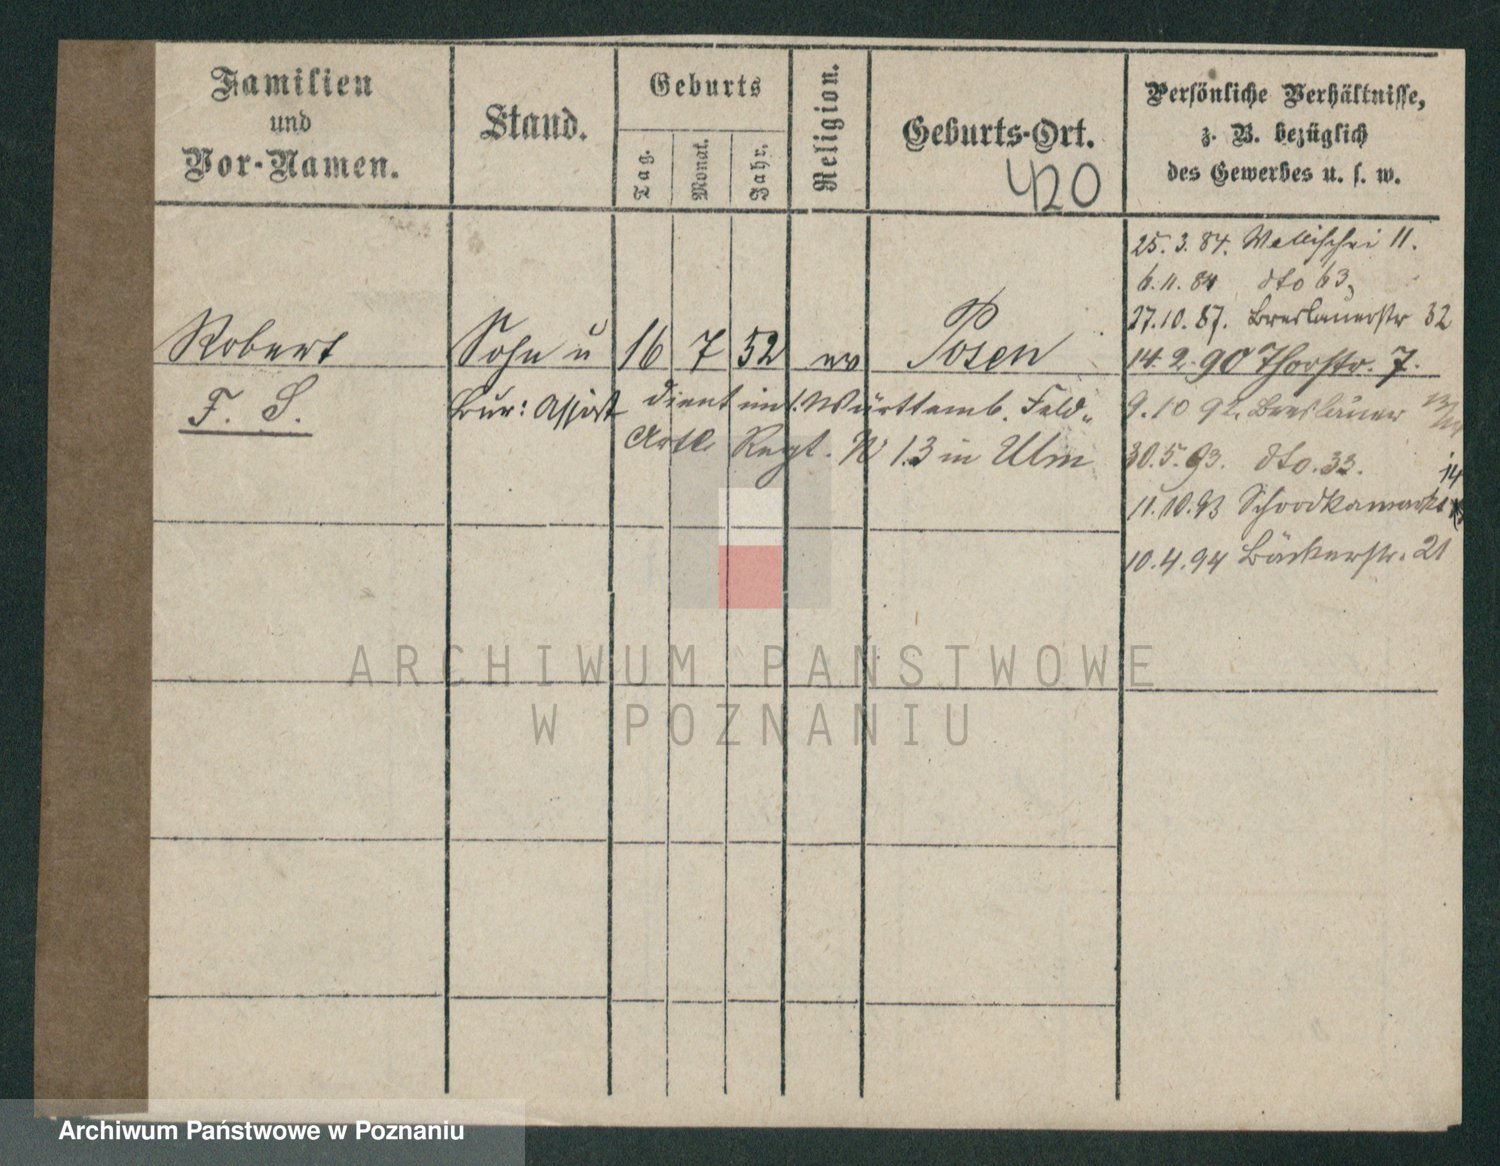 Familien
und
Vor-Namen.
Stand.
Geburts
Tag.
Monat.
Jahr.
Religion.
Geburts-Ort.
420
Persönliche Verhältnisse,
z. B. bezüglich
des Gewerbes u. s. w.
25. 3. 84. Wallischei 11.
6. 11. 84 dto 63,
27. 10. 87. Breslauerstr 32
Robert Sohn u 16 7 52 ev Posen
14. 2. 90 Thorstr. 7.
F. S. Bur: Assist dient im 1. Württemb. Feld-
9. 10 92. Breslauer
Artl. Regt. N 13 in Ulm
30. 5. 93. dto. 33.
14
11. 10. 93 Schrodkamarkt
10. 4. 94 Bäckerstr. 21
ARCHIWUM PAŃSTWOWE
W POZNANIU
Archiwum Państwowe w Poznaniu